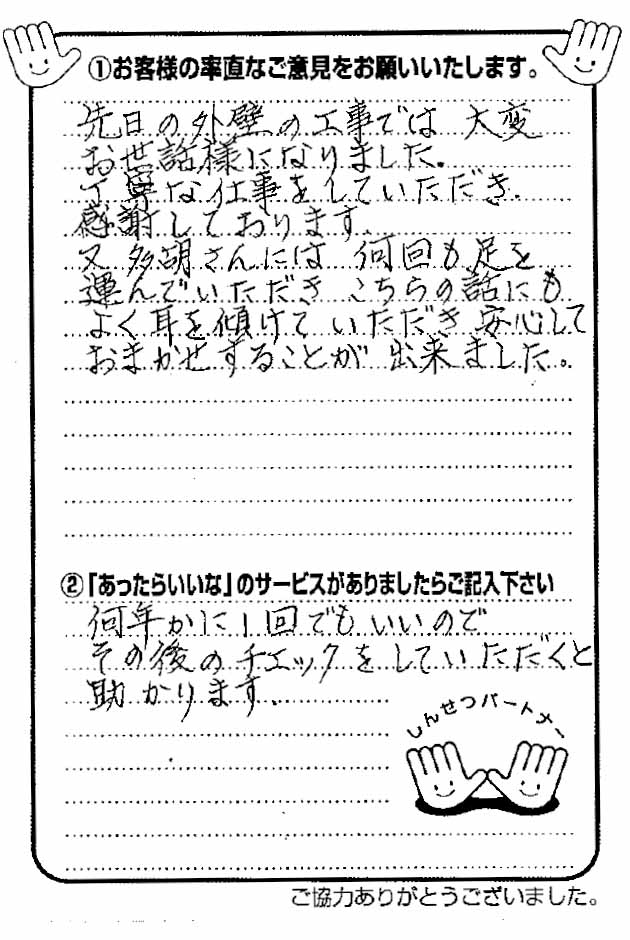 ①お客様の率直なご意見をお願いいたします。
先日の外壁の工事では 大変
お世話様になりました。
丁寧な仕事をしていただき、
感謝しております。
又 多胡さんには 何回も足を
運んでいただき こちらの話にも
よく耳を傾けて いただき 安心して
おまかせすることが 出来ました。
②「あったらいいな」のサービスがありましたらご記入下さい
何年かに1回でもいいので
その後のチェックをしていただくと
助かります。
しんせつパートナー
ご協力ありがとうございました。